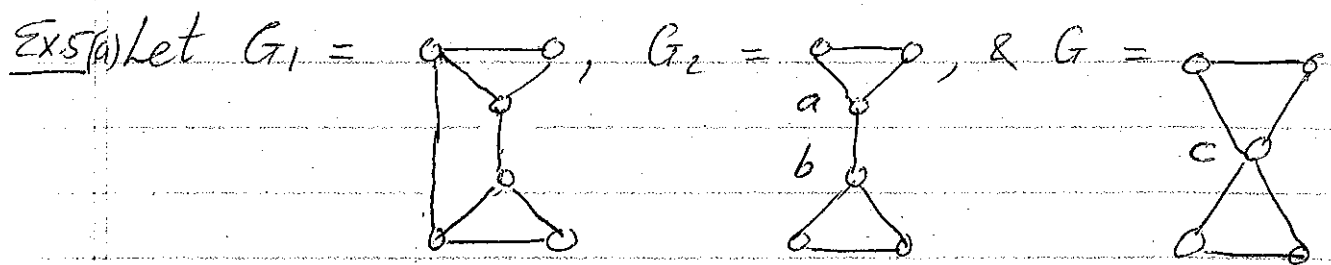 Ex.5(a) Let G₁ = , G₂ = , & G =
a
b
c